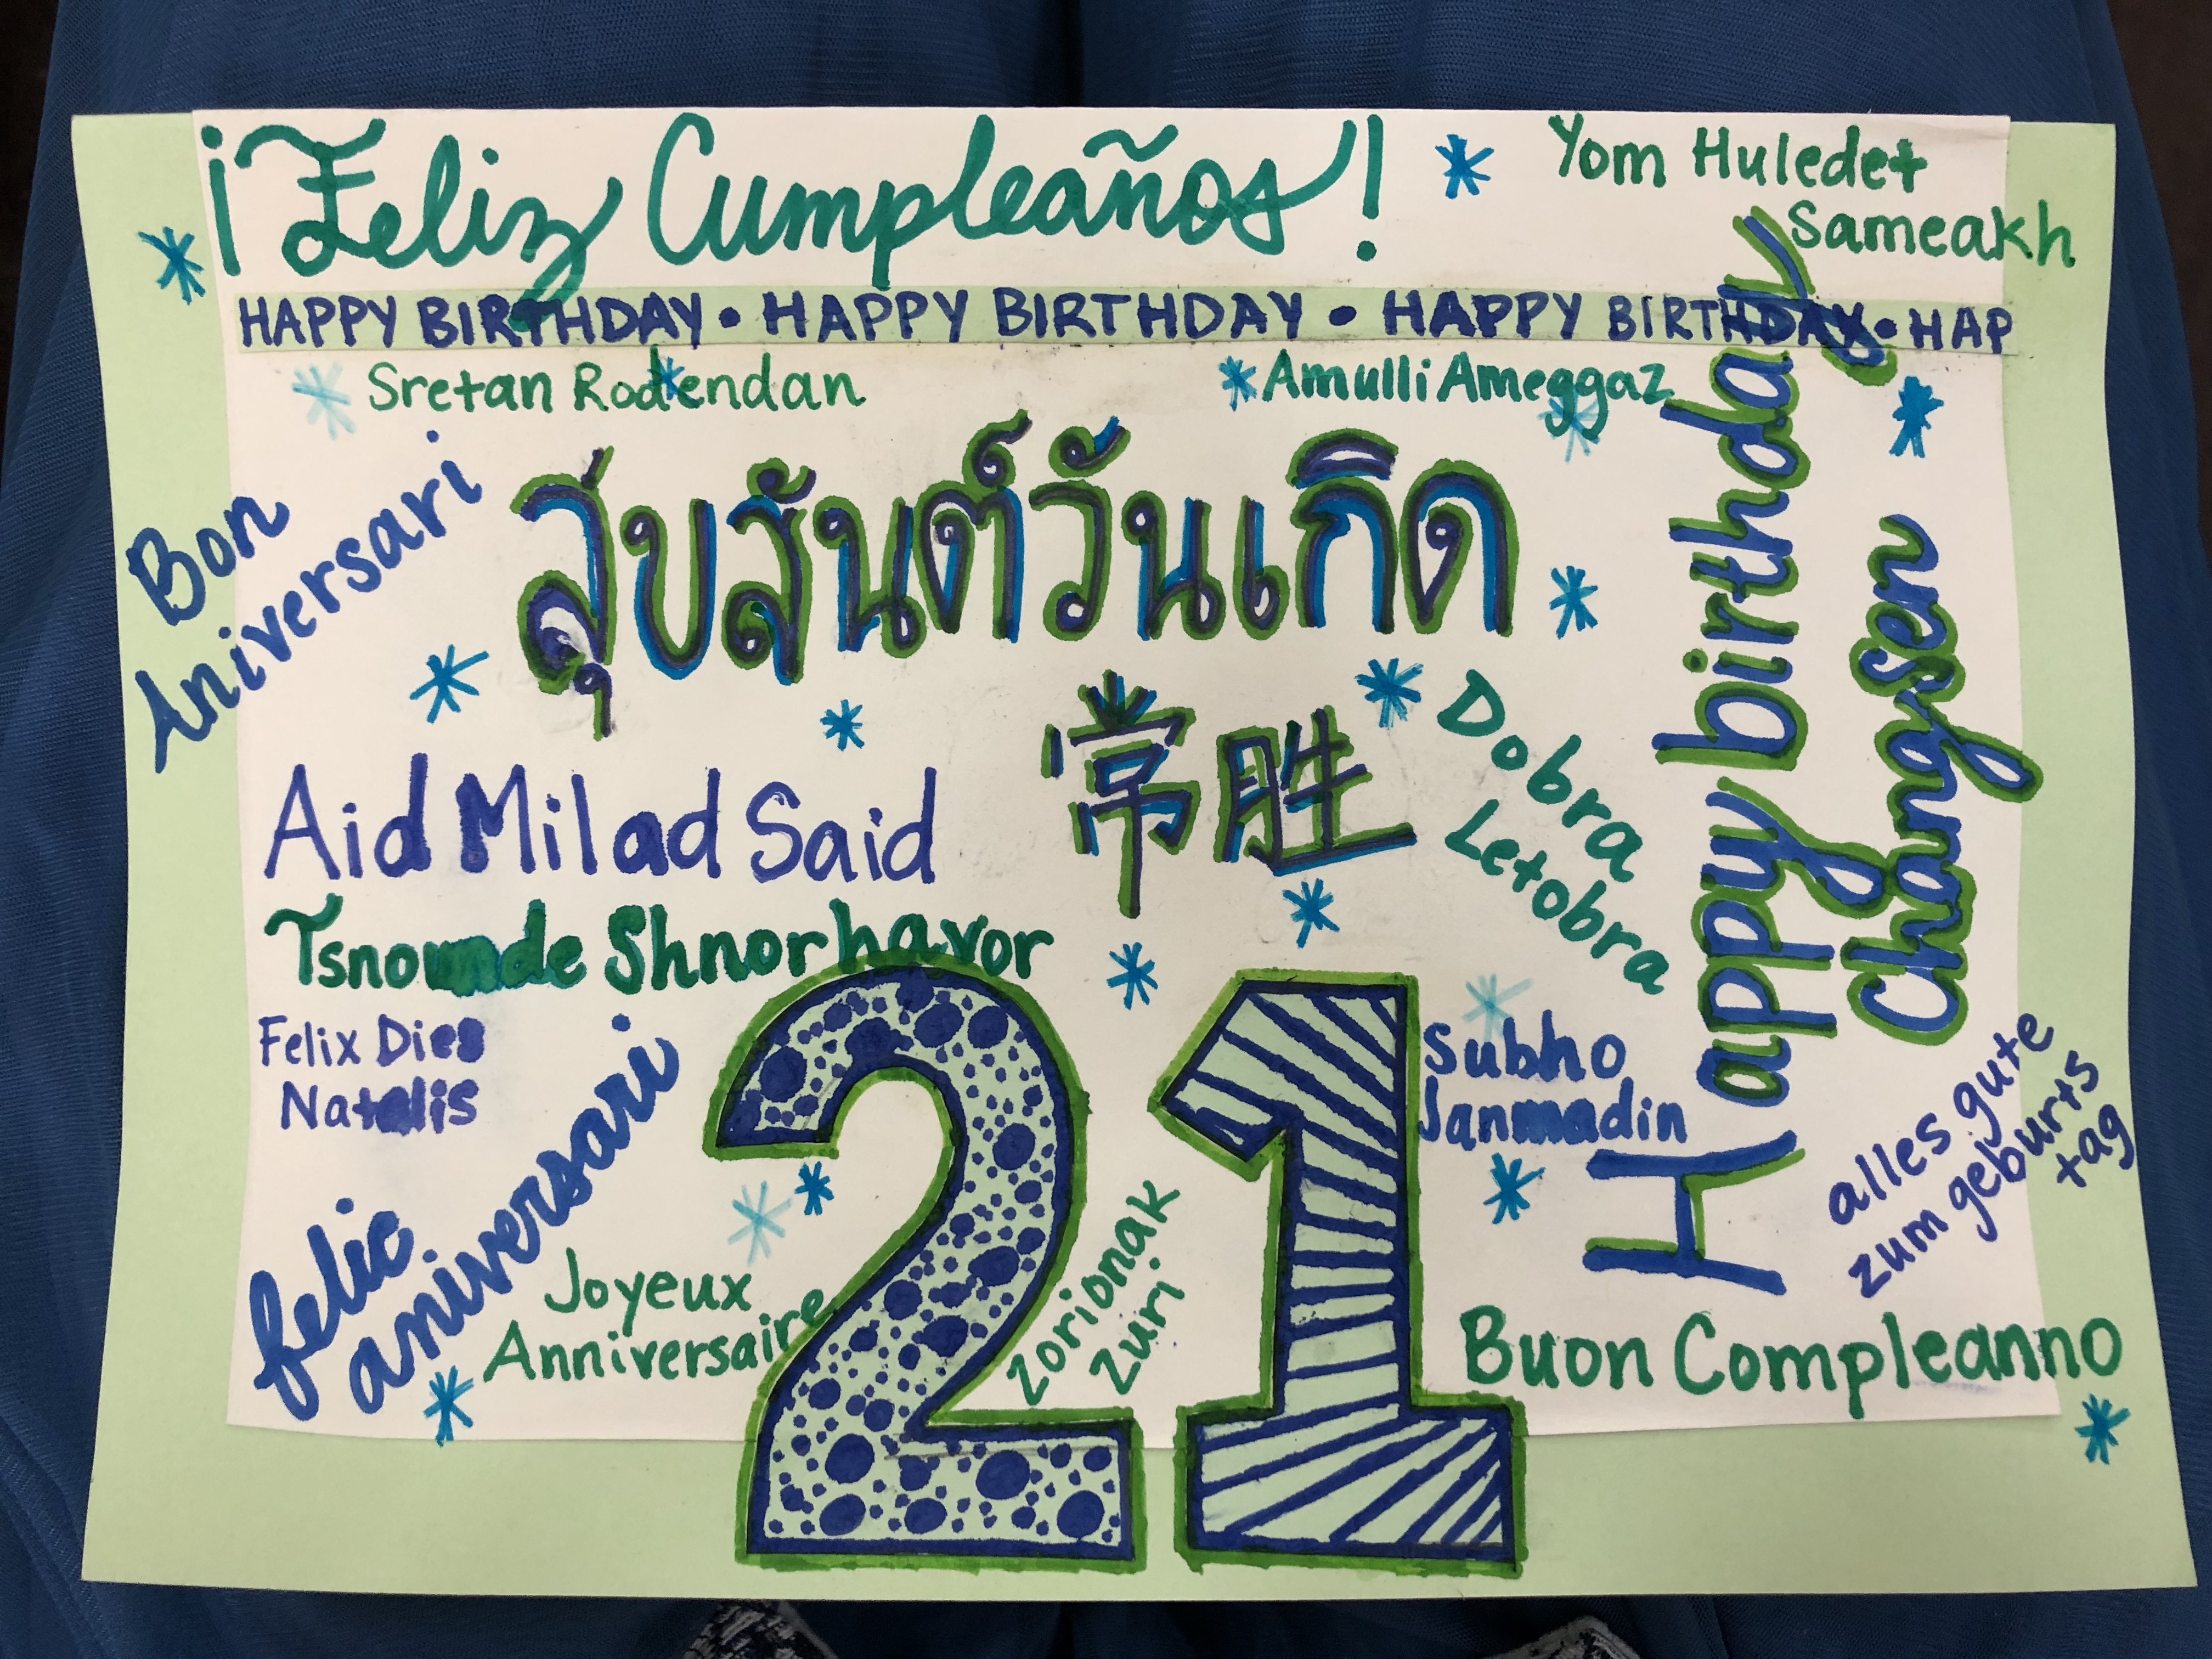 ¡Feliz Cumpleaños!
Yom Huledet
Sameakh
HAPPY BIRTHDAY • HAPPY BIRTHDAY • HAPPY BIRTHDAY • HAP
Sretan Rođendan
Amulli Ameggaz
Bon
Aniversari
สุขสันต์วันเกิด
常胜
Happy birthday
Changsen
Aid Milad Said
Dobra
Letobra
Tsnounde Shnorhavor
Felix Dies
Natalis
felic
aniversari
Joyeux
Anniversaire
21
Zorionak
Zuri
Subho
Janmadin
alles gute
zum geburts
tag
Buon Compleanno